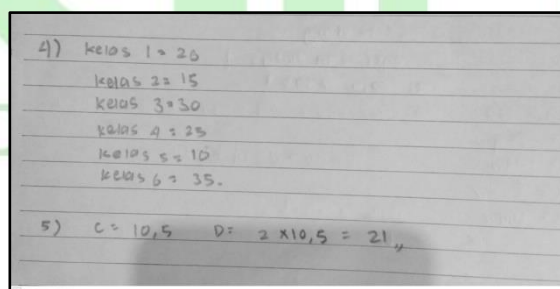 4) kelas 1 = 20
kelas 2 = 15
kelas 3 = 30
kelas 4 = 25
kelas 5 = 10
kelas 6 = 35.
5) C = 10,5 D = 2 x 10,5 = 21 ,,